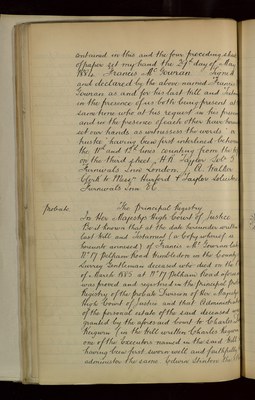 contained in this and the four preceding sheets
of paper set my hand the 29th day of May
1884. Francis Mc Gowran. Signed
and declared by the above named Francis
Gowran as and for his last Will and Testa
in the presence of us both being present at
same time who at his request in his presen
and in the presence of each other have here
set our hands as witnesses the words "a
trustee" having been first interlined between
the 11th and 12th lines counting from the
on the third sheet. H. R. Taylor Solr 3
Furnivals Inn London. Walter
Clerk to Messrs Hurford & Taylor Solicitors
Furnivals Inn EC
Probate
The Principal Registry
In Her Majestys High Court of Justice
Be it known that at the date hereunder written
last Will and Testament (a Copy whereof is
hereunto annexed) of Francis Mc Gowran late
No 17 Pelham Road Wimbledon in the County
Surrey Gentleman deceased who died on the
of March 1885 at No 17 Pelham Road afores
was proved and registered in the principal Pro
Registry of the Probate Division of Her Majestys
High Court of Justice and that Administrat
of the personal estate of the said deceased
granted by the aforesaid Court to Charles
(in the Will written Charles
one of the Executors named in the said Will
having been first sworn well and faithfully
administer the same.